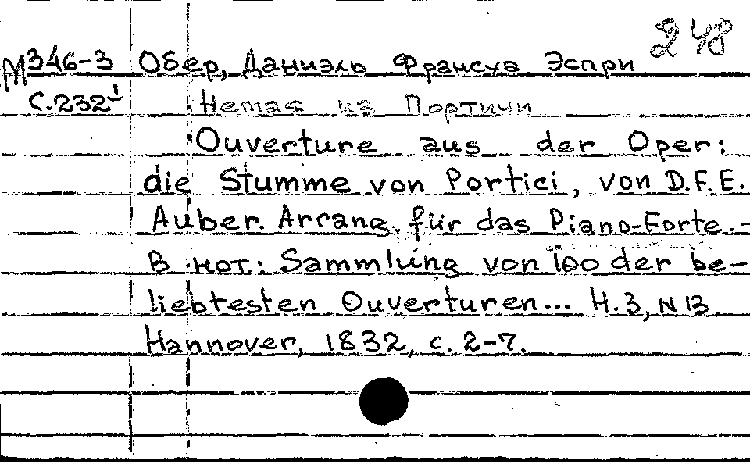 248
М346-3 Обер, Даниэль Франсуа Эспри
С.232¹ Немая из Портичи
Ouverture aus der Oper:
die Stumme von Portici, von D.F.E.
Auber. Arrang. für das Piano-Forte.-
В нот.: Sammlung von 100 der be-
liebtesten Ouverturen... H.3, N 13
Hannover, 1832, с. 2-7.